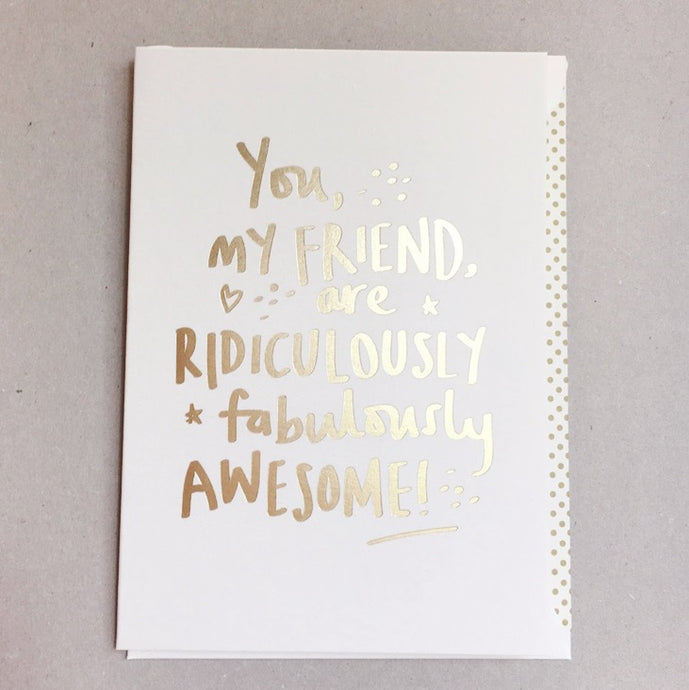 You,
MY FRIEND,
are
RIDICULOUSLY
fabulously
AWESOME!